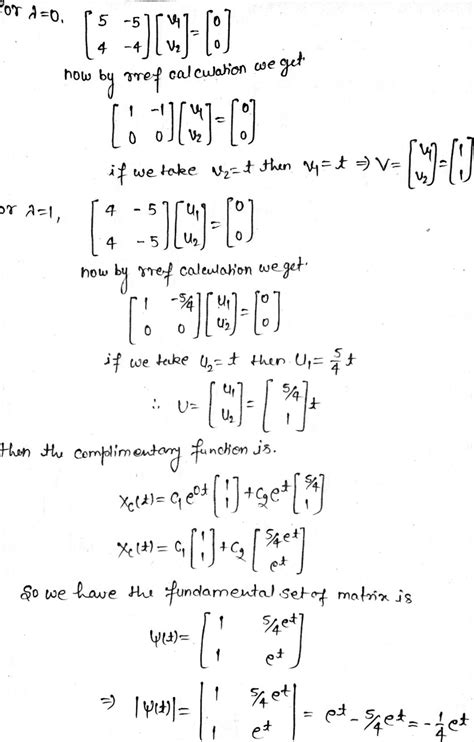 or λ=0, [5 -5; 4 -4] [v₁; v₂] = [0; 0]
now by rref calculation we get.
[1 -1; 0 0] [v₁; v₂] = [0; 0]
if we take v₂=t then v₁=t ⇒ V= [v₁; v₂] = [1; 1]
or λ=1, [4 -5; 4 -5] [u₁; u₂] = [0; 0]
now by rref calculation we get.
[1 -5/4; 0 0] [u₁; u₂] = [0; 0]
if we take u₂=t then u₁= 5/4 t
∴ U= [u₁; u₂] = [5/4; 1] t
then the complimentary function is.
x_c(t)= c₁e^{0t} [1; 1] + c₂e^t [5/4; 1]
x_c(t)= c₁ [1; 1] + c₂ [5/4 e^t; e^t]
So we have the fundamental set of matrix is
ψ(t)= [1 5/4 e^t; 1 e^t]
⇒ |ψ(t)|= |1 5/4 e^t; 1 e^t| = e^t - 5/4 e^t = -1/4 e^t